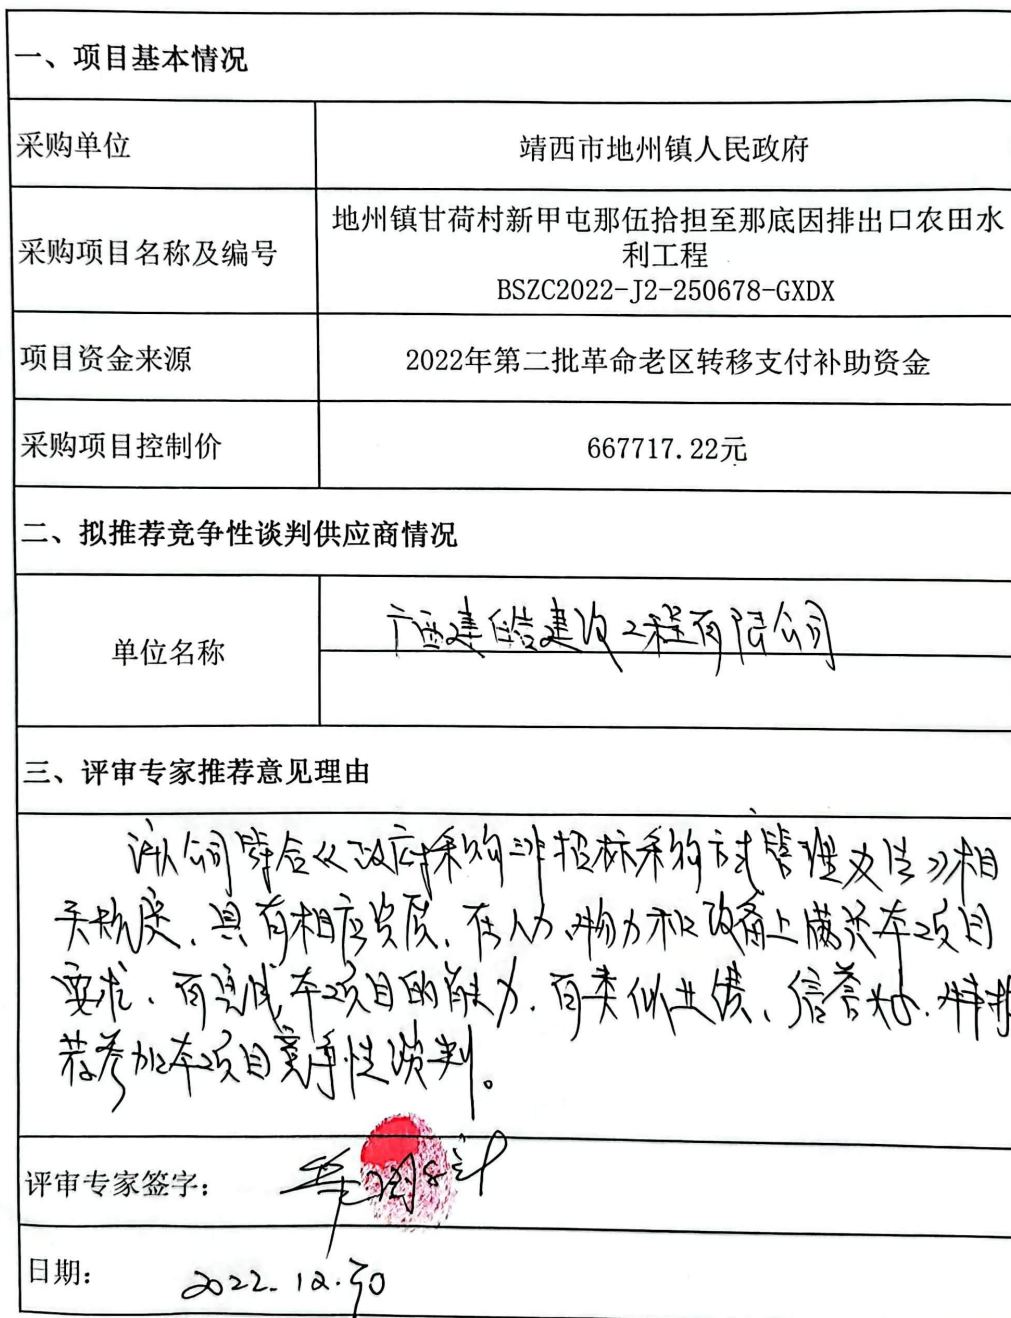 一、项目基本情况
采购单位
靖西市地州镇人民政府
采购项目名称及编号
地州镇甘荷村新甲屯那伍拾担至那底因排出口农田水
利工程
BSZC2022-J2-250678-GXDX
项目资金来源
2022年第二批革命老区转移支付补助资金
采购项目控制价
667717.22元
二、拟推荐竞争性谈判供应商情况
单位名称
广西建皓建设工程有限公司
三、评审专家推荐意见理由
该公司符合《政府采购非招标采购方式管理办法》相
关规定、具有相应资质、在人力、物力和设备上满足本项目
要求、有完成本项目的能力、有类似业绩、信誉好、特推
荐参加本项目竞争性谈判。
评审专家签字：
日期：
2022.12.30